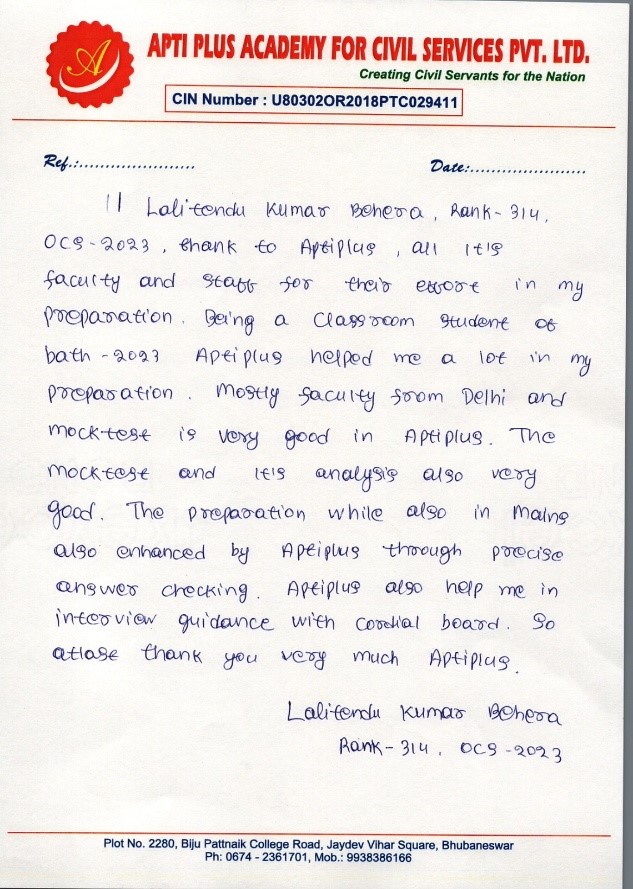 A
APTI PLUS ACADEMY FOR CIVIL SERVICES PVT. LTD.
Creating Civil Servants for the Nation
CIN Number : U80302OR2018PTC029411
Ref.:...................... Date:.......................
|| Lalitendu Kumar Behera, Rank-314,
OCS-2023, thank to Aptiplus, all it's
faculty and staff for their effort in my
preparation. Being a classroom student of
bath-2023 Aptiplus helped me a lot in my
preparation. Mostly faculty from Delhi and
mocktest is very good in Aptiplus. The
mocktest and it's analysis also very
good. The preparation while also in Mains
also enhanced by Aptiplus through precise
answer checking. Aptiplus also help me in
interview guidance with cordial board. So
atlast thank you very much Aptiplus.
Lalitendu Kumar Behera
Rank-314, OCS-2023
Plot No. 2280, Biju Pattnaik College Road, Jaydev Vihar Square, Bhubaneswar
Ph: 0674 - 2361701, Mob.: 9938386166